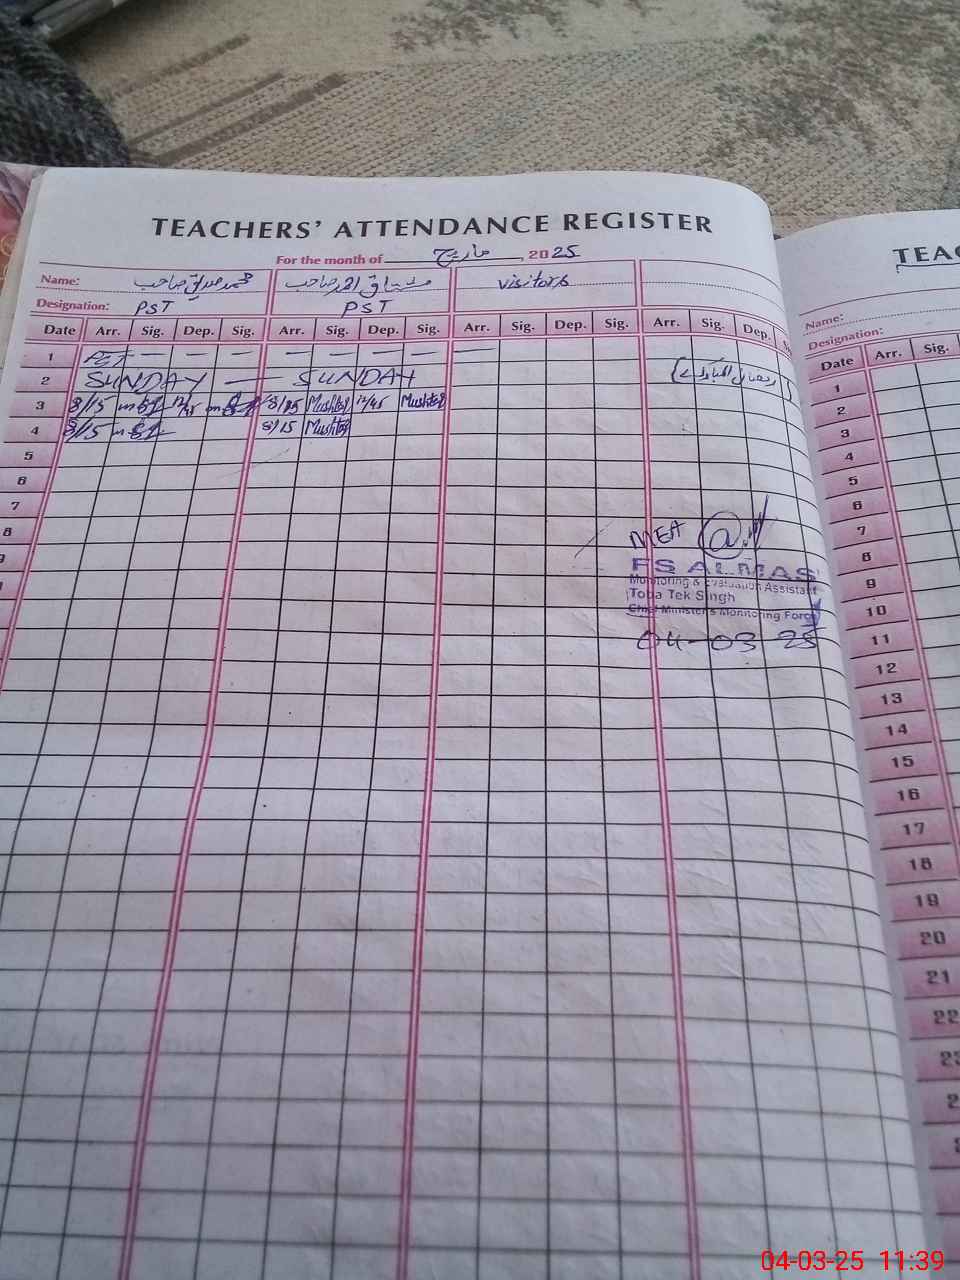 TEACHERS' ATTENDANCE REGISTER
For the month of مارچ, 2025
Name: محمد صدیق صاحب مشتاق احمد صاحب visitors
Designation: PST PST
Date Arr. Sig. Dep. Sig. Arr. Sig. Dep. Sig. Arr. Sig. Dep. Sig. Arr. Sig. Dep.
1 — — — — — — — —
2 SUNDAY — SUNDAY (رمضان المبارک)
3 8/15 12/45 8/15 Mushtaq 12/45 Mushtaq
4 8/15 8/15 Mushtaq
5
6
7
8
MEA
FS ALMAS
Monitoring & Evaluation Assistant
Toba Tek Singh
Chief Minister's Monitoring Force
04-03-25
TEAC
Name:
Designation:
Date Arr. Sig.
1
2
3
4
5
6
7
8
9
10
11
12
13
14
15
16
17
18
19
20
21
22
04-03-25 11:39